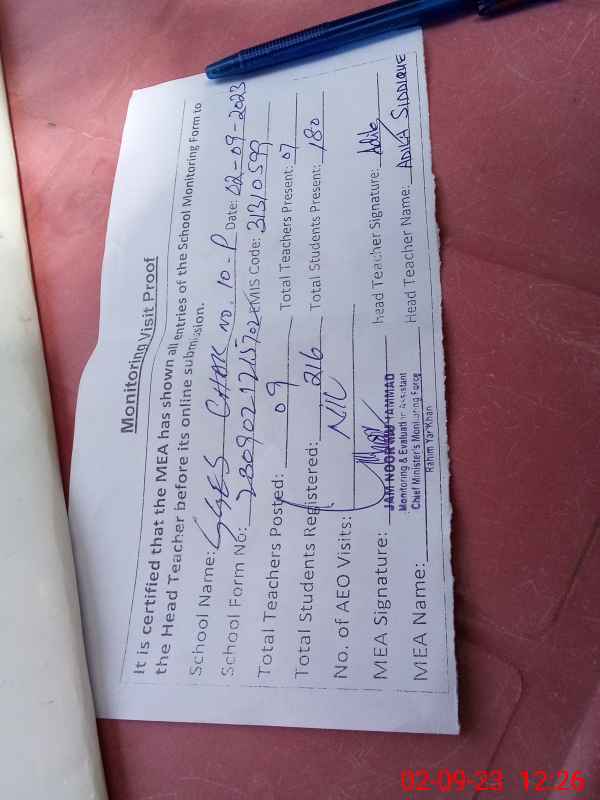 Monitoring Visit Proof
It is certified that the MEA has shown all entries of the School Monitoring Form to
the Head Teacher before its online submission.
School Name: GGES CHAK NO. 10-P Date: 02-09-2023
School Form No: EMIS Code: 31310599
Total Teachers Posted: 09 Total Teachers Present: 07
Total Students Registered: 216 Total Students Present: 180
No. of AEO Visits: NIL
MEA Signature: Head Teacher Signature: Adila
JAM NOOR MUHAMMAD
Monitoring & Evaluation Assistant
Chief Minister's Monitoring Force
Rahim Yar Khan
MEA Name: Head Teacher Name: ADILA SIDDIQUE
02-09-23 12:26